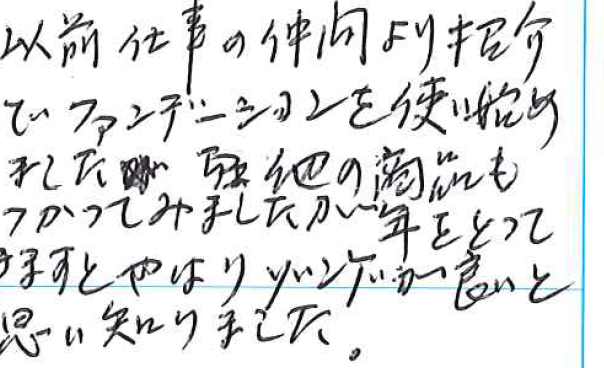 以前仕事の仲間より紹介
でファンデーションを使い始め
ました 他の商品も
つかってみましたが年をとって
きますとやはりリビングが良いと
思い知りました。